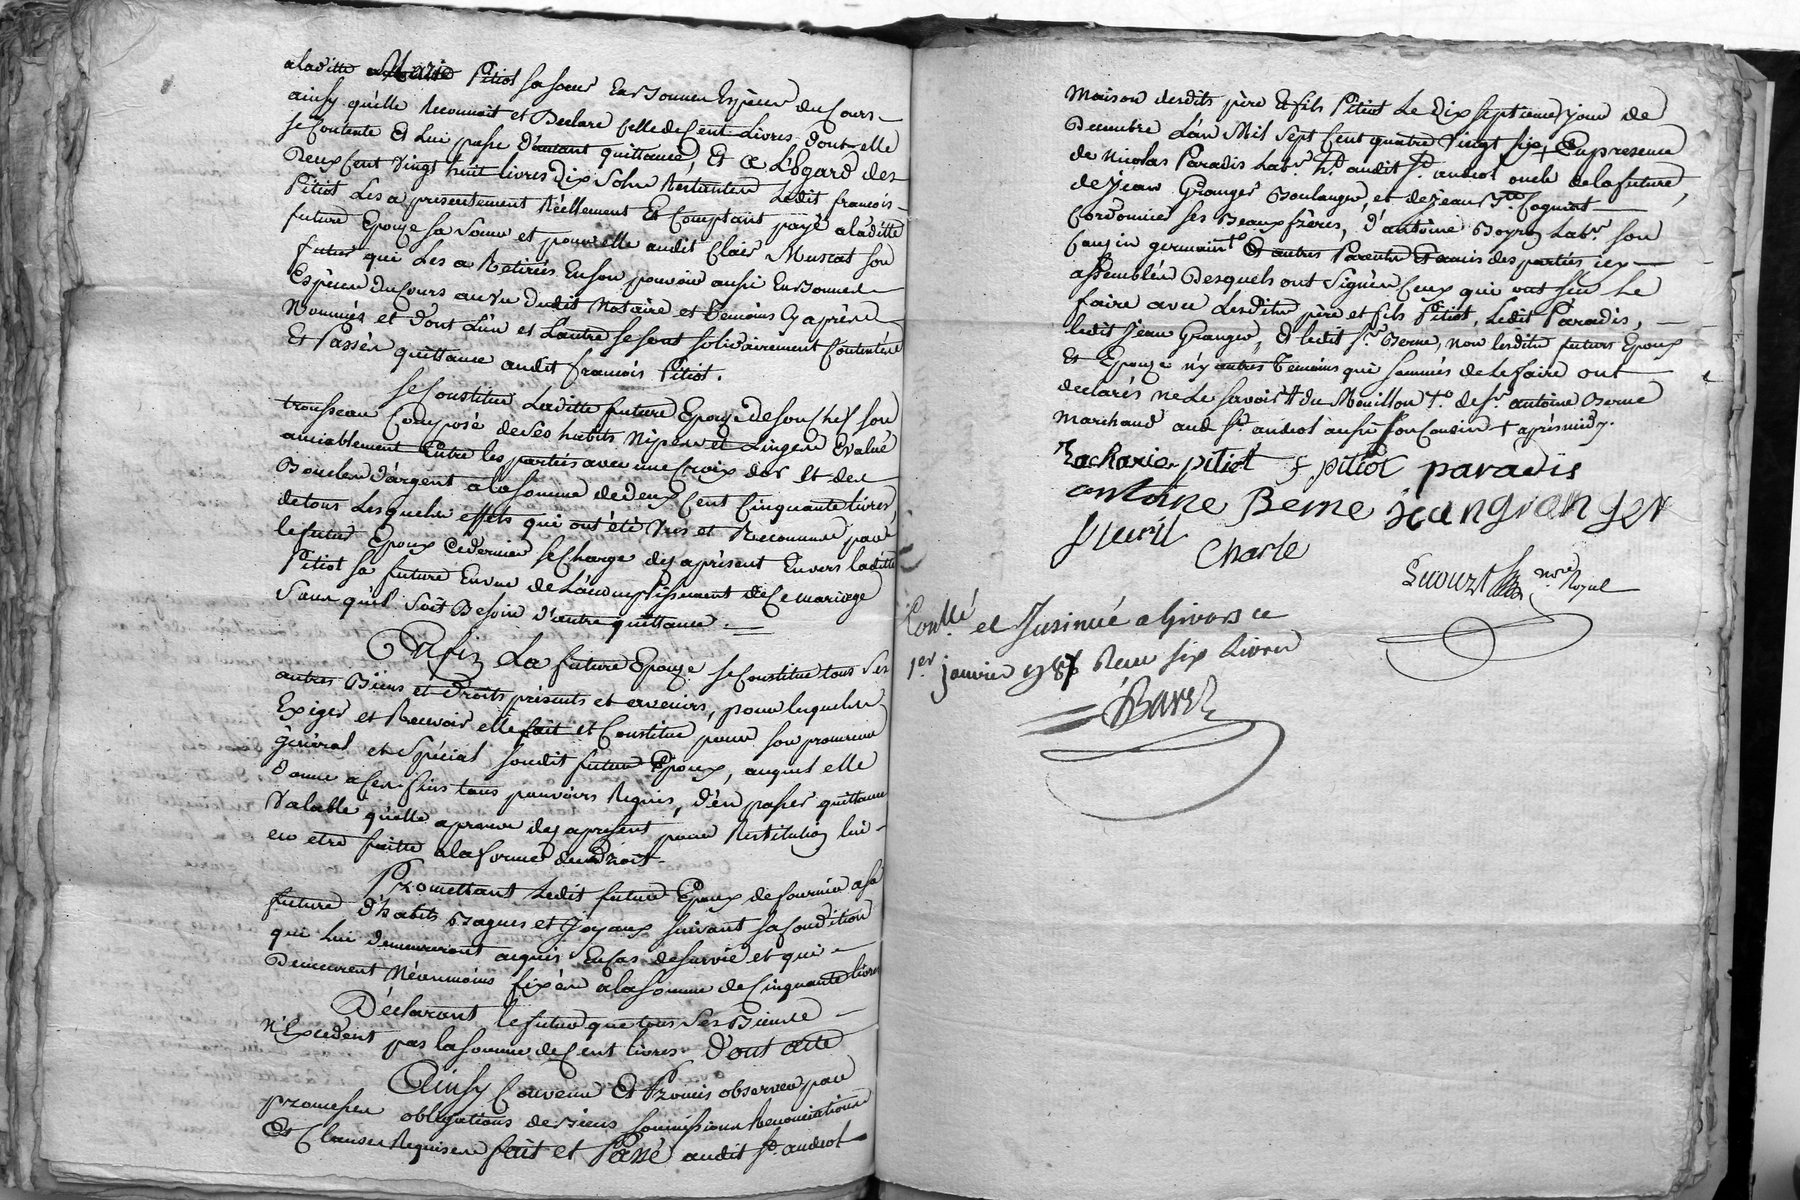 aladitte Marie Pitiot sa soeur En Bonnes Espèces du Cours
ainsy quelle Reconnoit et Declare celle de Cent Livres dont elle
se Contente Et Lui passe d'autant quittance, Et a L'Egard des
Deux Cent Vingt huit Livres Dix Sols Restantes Ledit francois
Pitiot Les a presentement Réellement Et Comptant payé aladitte
future Epouze sa Soeur et pour elle audit Clair Muscat son
futur qui Les a Retirées En son pouvoir aussi En Bonnes
Espèces du Cours au vu dudit Notaire et Temoins Cy après
Nommés et dont L'un et L'autre se sont solidairement Contentés
Et Passés quittance audit francois Pitiot.
se Constitue Laditte future Epouze de son chef son
trousseau Composé de ses habits Nipes et Linges Evalué
amiablement Entre les parties avec une Croix d'or Et des
Boucles d'argent a la somme de deux Cent Cinquante livres
de tous Lesquels effets qui ont été Vus et Reconnus par
le futur Epoux Ce dernier se Charge des aprésent Envers laditte
Pitiot sa future En vue de L'accomplissement de Ce mariage
Sans quil soit Besoin d'autre quittance.
Enfin La future Epouze se Constitue tous ses
autres Biens et droits présents et avenirs, pour lesquels
Exiger et Recevoir elle fait et Constitue pour son procureur
général et Spécial sondit futur Epoux, auquel elle
donne a ces fins tous pouvoirs Requis, d'en passer quittance
Valable quelle aprouve des aprésent pour Restitution lui
en etre faitte a la forme du Droit.
Promettant Ledit futur Epoux de fournir a sa
future d'habits Bagues et Joyaux suivant sa Condition
qui Lui demeureront acquis En Cas de survie et qui
Demeurent Néanmoins fixés a la Somme de Cinquante livres
Déclarant le futur que tous ses Biens
n'Excedent pas la Somme de Cent livres dont acte
Ainsy Convenu Et Promis observer par
promesses obligations de Biens soumissions Renonciations
Et Clauses Requises fait et Passé audit St. andeol
Maison desdits père Et fils Pitiot Le Dix septieme jour de
Decembre L'an Mil Sept Cent quatre Vingt six + En presence
de Nicolas Paradis Labr. ht. audit St. andeol oncle de la future,
de Jean Granger Boulanger, et de Jean Bte Cognat
Cordonnier ses Beaux frères, d'antoine Boyer Labr. son
Cousin germain # & autres Parents Et amis des parties icy
assemblés Desquels ont Signés Ceux qui ont sçu Le
faire avec Lesdits père et fils Pitiot, Ledit Paradis,
ledit Jean Granger, & ledit Sr. Berne, non lesdits futurs Epoux
Et Epouze n'y autres Temoins qui sommés de Le faire ont
declarés ne Le Savoir # du Mouillon + & de Sr antoine Berne
Marchand aud St andeol aussi son Cousin + aprésmidy.
Zacharie pitiot f pitiot paradis
antoine Berne jean granger
Charle
Lecourt nore Royal
Conllé et Insinué a Givors ce
1er janvier 1787 Reçu six Livres
Barel